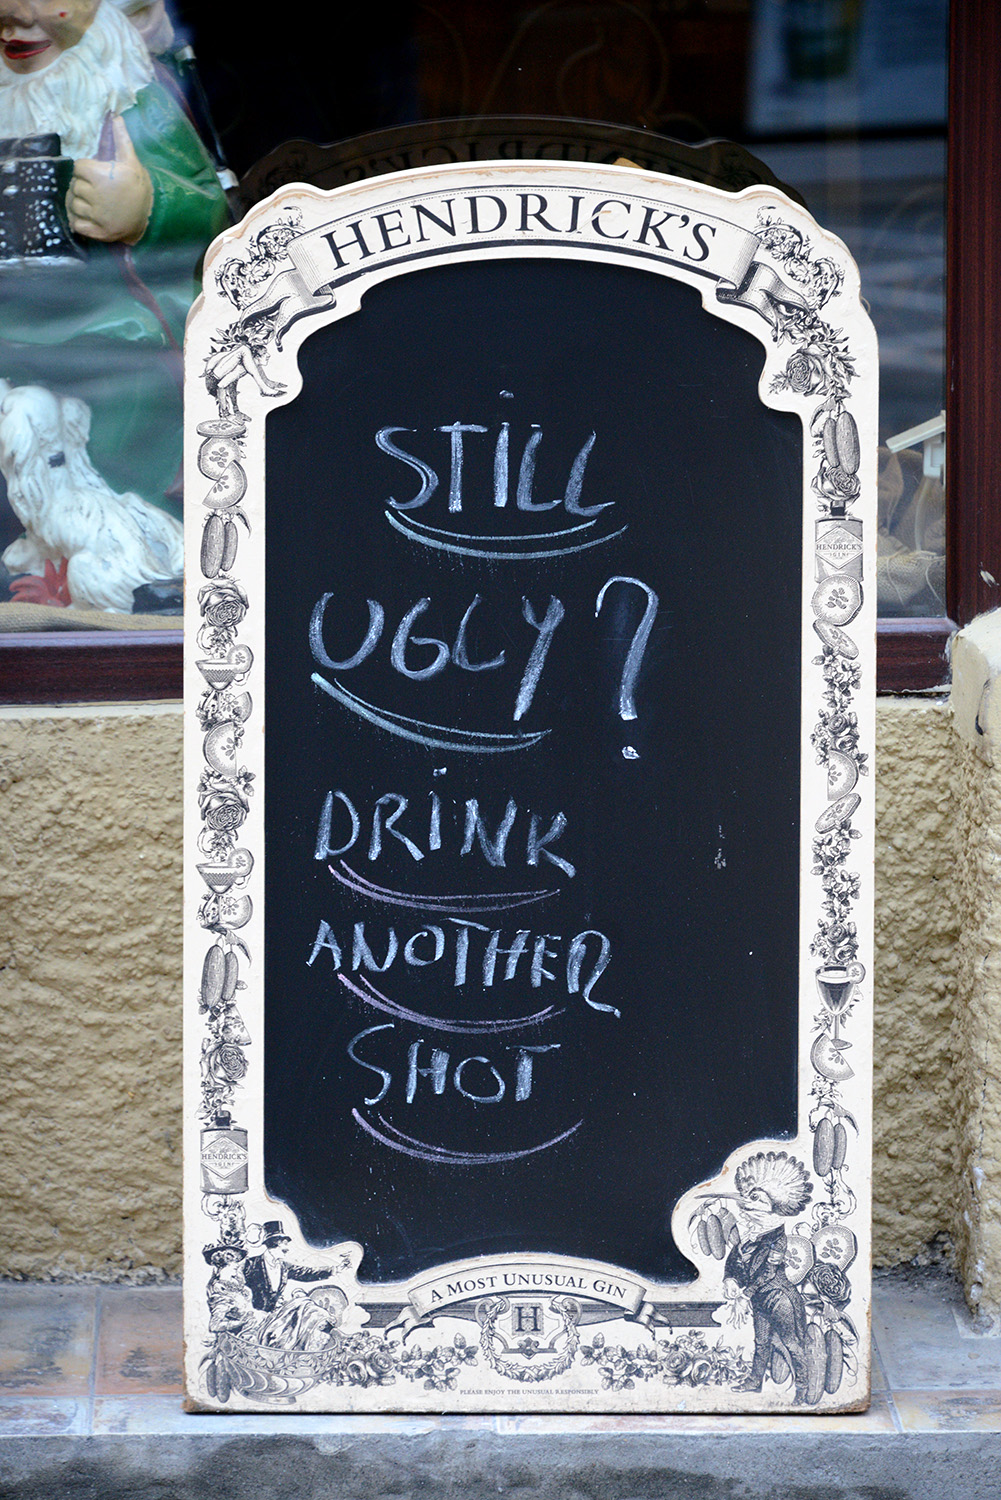 HENDRICK'S
STILL
UGLY?
DRINK
ANOTHER
SHOT
HENDRICK'S
GIN
HENDRICK'S
GIN
A MOST UNUSUAL GIN
H
PLEASE ENJOY THE UNUSUAL RESPONSIBLY